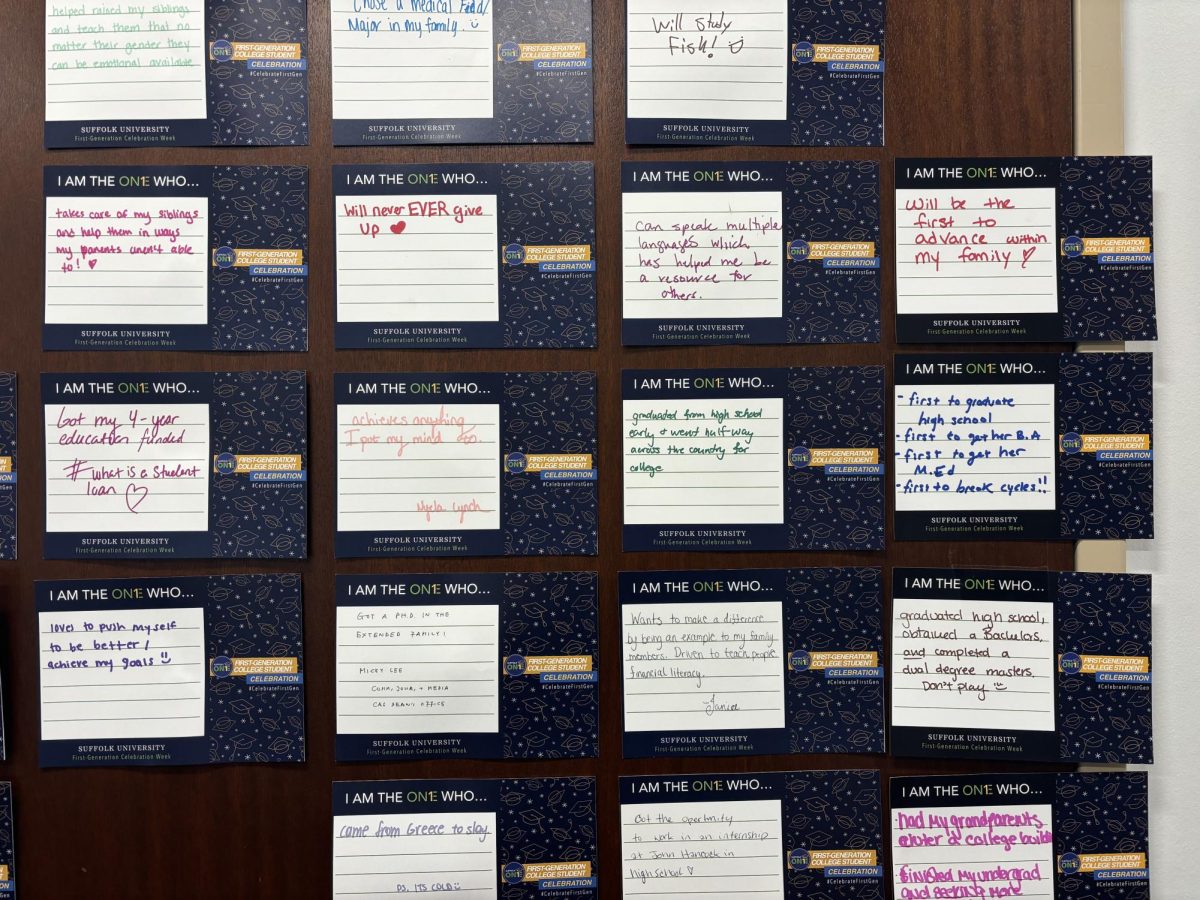 helped raised my siblings
and teach them that no
matter their gender they
can be emotional available
ON1E
FIRST-GENERATION
COLLEGE STUDENT
CELEBRATION
#CelebrateFirstGen
SUFFOLK UNIVERSITY
First-Generation Celebration Week
Chose a medical Field/
Major in my family.
ON1E
FIRST-GENERATION
COLLEGE STUDENT
CELEBRATION
#CelebrateFirstGen
SUFFOLK UNIVERSITY
First-Generation Celebration Week
Will study
Fish!
ON1E
FIRST-GENERATION
COLLEGE STUDENT
CELEBRATION
#CelebrateFirstGen
SUFFOLK UNIVERSITY
First-Generation Celebration Week
I AM THE ON1E WHO...
takes care of my siblings
and help them in ways
my parents weren't able
to!
ON1E
FIRST-GENERATION
COLLEGE STUDENT
CELEBRATION
#CelebrateFirstGen
SUFFOLK UNIVERSITY
First-Generation Celebration Week
I AM THE ON1E WHO...
Will never EVER give
up
ON1E
FIRST-GENERATION
COLLEGE STUDENT
CELEBRATION
#CelebrateFirstGen
SUFFOLK UNIVERSITY
First-Generation Celebration Week
I AM THE ON1E WHO...
Can speak multiple
languages which
has helped me be
a resource for
others.
ON1E
FIRST-GENERATION
COLLEGE STUDENT
CELEBRATION
#CelebrateFirstGen
SUFFOLK UNIVERSITY
First-Generation Celebration Week
I AM THE ON1E WHO...
Will be the
first to
advance within
my family
ON1E
FIRST-GENERATION
COLLEGE STUDENT
CELEBRATION
#CelebrateFirstGen
SUFFOLK UNIVERSITY
First-Generation Celebration Week
I AM THE ON1E WHO...
Got my 4-year
education funded
# what is a student
loan
ON1E
FIRST-GENERATION
COLLEGE STUDENT
CELEBRATION
#CelebrateFirstGen
SUFFOLK UNIVERSITY
First-Generation Celebration Week
I AM THE ON1E WHO...
achieves anything
I put my mind too.
Lynch
ON1E
FIRST-GENERATION
COLLEGE STUDENT
CELEBRATION
#CelebrateFirstGen
SUFFOLK UNIVERSITY
First-Generation Celebration Week
I AM THE ON1E WHO...
graduated from high school
early & went half-way
across the country for
college
ON1E
FIRST-GENERATION
COLLEGE STUDENT
CELEBRATION
#CelebrateFirstGen
SUFFOLK UNIVERSITY
First-Generation Celebration Week
I AM THE ON1E WHO...
- first to graduate
high school
- first to get her B.A
- first to get her
M.Ed
- first to break cycles!!
ON1E
FIRST-GENERATION
COLLEGE STUDENT
CELEBRATION
#CelebrateFirstGen
SUFFOLK UNIVERSITY
First-Generation Celebration Week
I AM THE ON1E WHO...
loves to push myself
to be better /
achieve my goals
ON1E
FIRST-GENERATION
COLLEGE STUDENT
CELEBRATION
#CelebrateFirstGen
SUFFOLK UNIVERSITY
First-Generation Celebration Week
I AM THE ON1E WHO...
GOT A PH.D. IN THE
EXTENDED FAMILY!
MICKY LEE
COMM, JOUR, + MEDIA
CAS DEAN'S OFFICE
ON1E
FIRST-GENERATION
COLLEGE STUDENT
CELEBRATION
#CelebrateFirstGen
SUFFOLK UNIVERSITY
First-Generation Celebration Week
I AM THE ON1E WHO...
Wants to make a difference
by being an example to my family
members. Driven to teach people
financial literacy.
ON1E
FIRST-GENERATION
COLLEGE STUDENT
CELEBRATION
#CelebrateFirstGen
SUFFOLK UNIVERSITY
First-Generation Celebration Week
I AM THE ON1E WHO...
graduated high school,
obtained a Bachelors,
and completed a
dual degree masters.
Don't play
ON1E
FIRST-GENERATION
COLLEGE STUDENT
CELEBRATION
#CelebrateFirstGen
SUFFOLK UNIVERSITY
First-Generation Celebration Week
I AM THE ON1E WHO...
came from Greece to slay
PS. ITS COLD
ON1E
FIRST-GENERATION
COLLEGE STUDENT
CELEBRATION
#CelebrateFirstGen
I AM THE ON1E WHO...
Got the oportunity
to work in an internship
at John Hancock in
high school
ON1E
FIRST-GENERATION
COLLEGE STUDENT
CELEBRATION
#CelebrateFirstGen
I AM THE ON1E WHO...
had my grandparents
enter a college
finished my undergrad
and seeking more
ON1E
FIRST-GENERATION
COLLEGE STUDENT
CELEBRATION
#CelebrateFirstGen